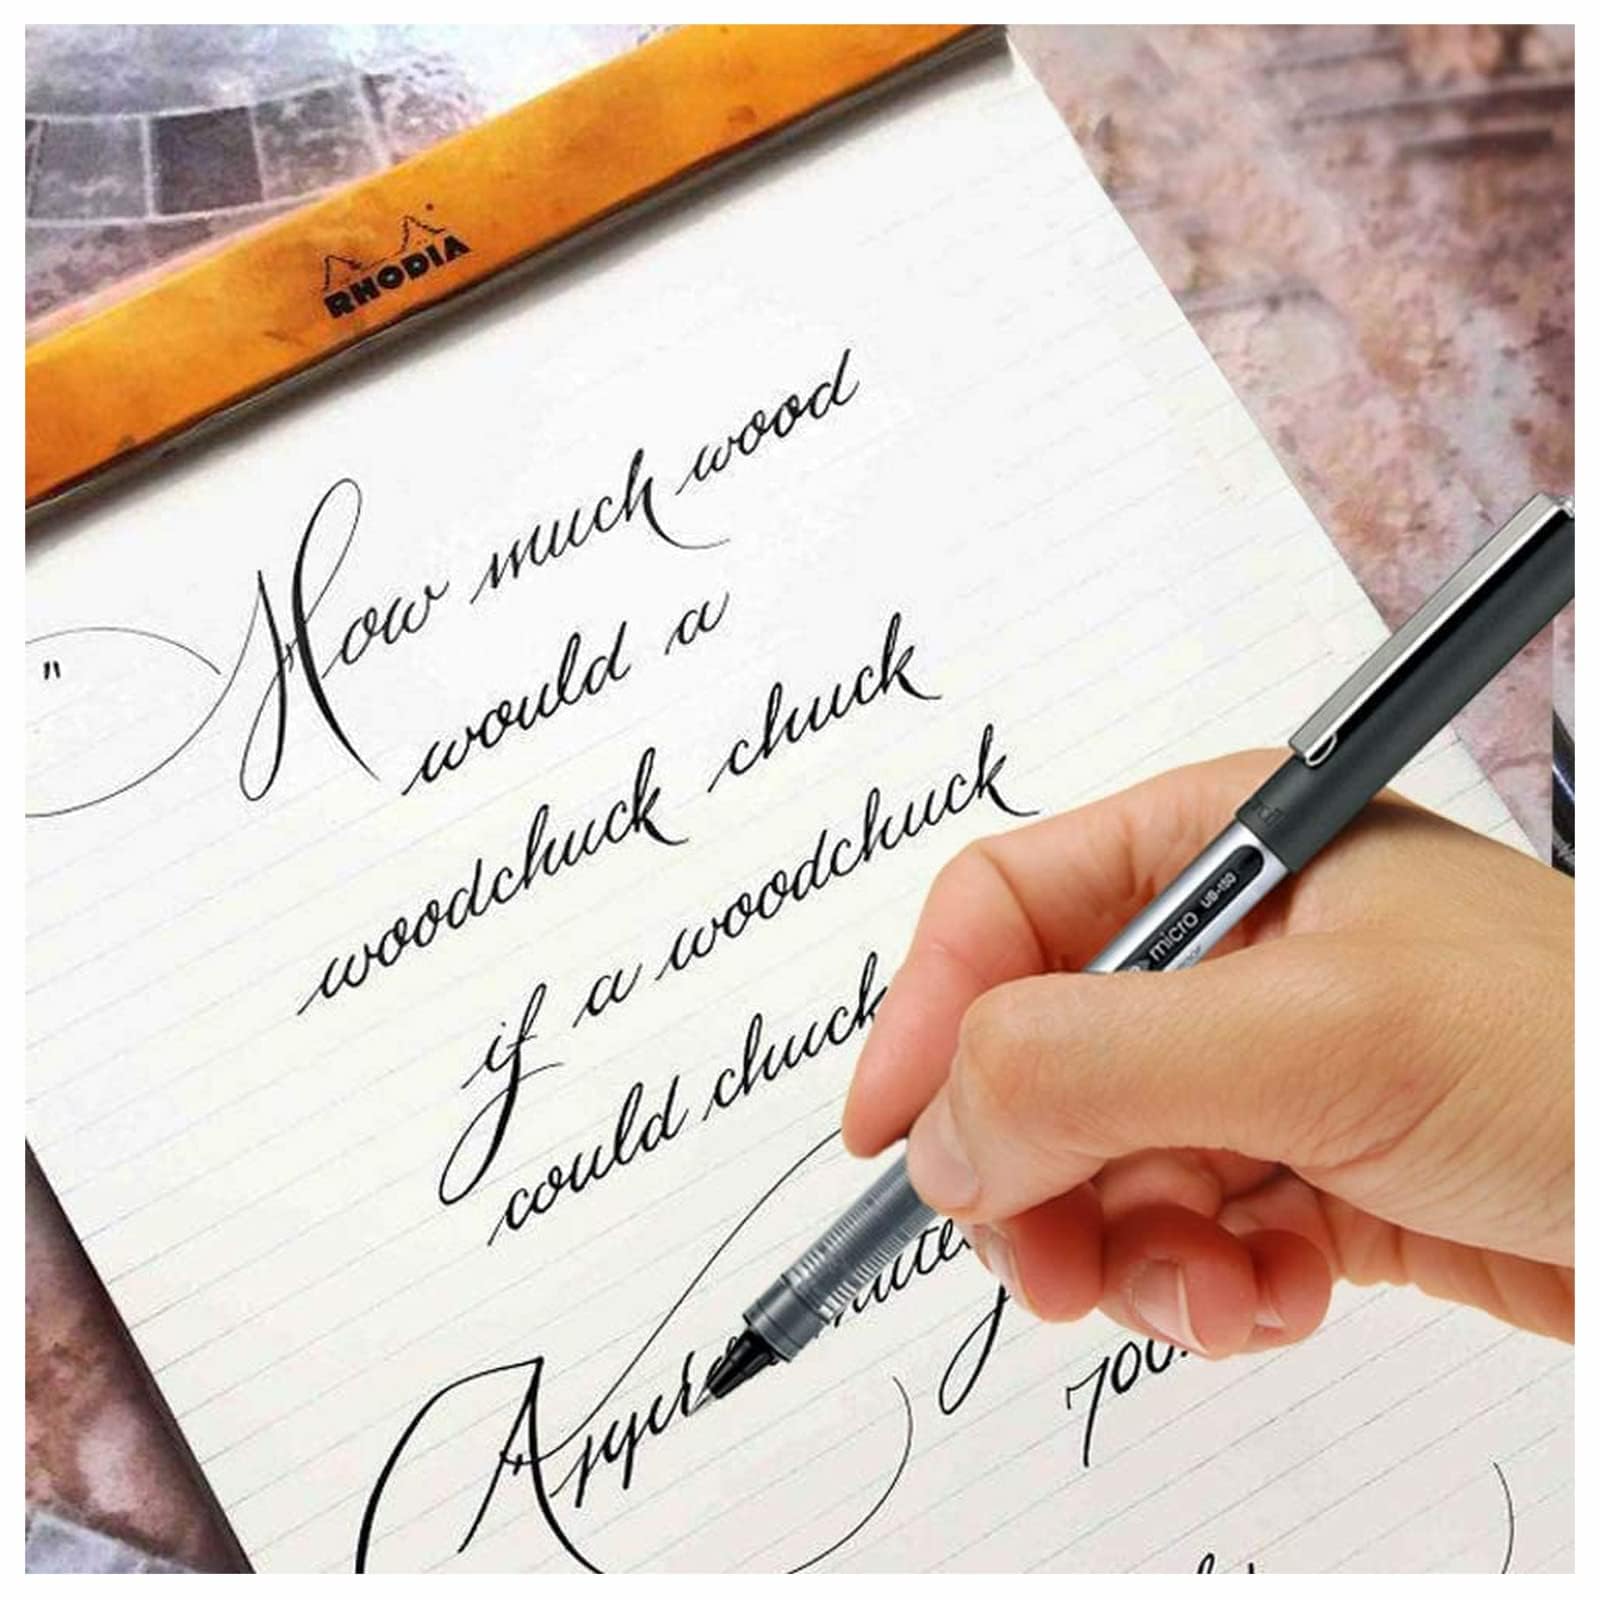 RHODIA
"
How much wood
would a
woodchuck chuck
if a woodchuck
could chuck
micro UB-150
700